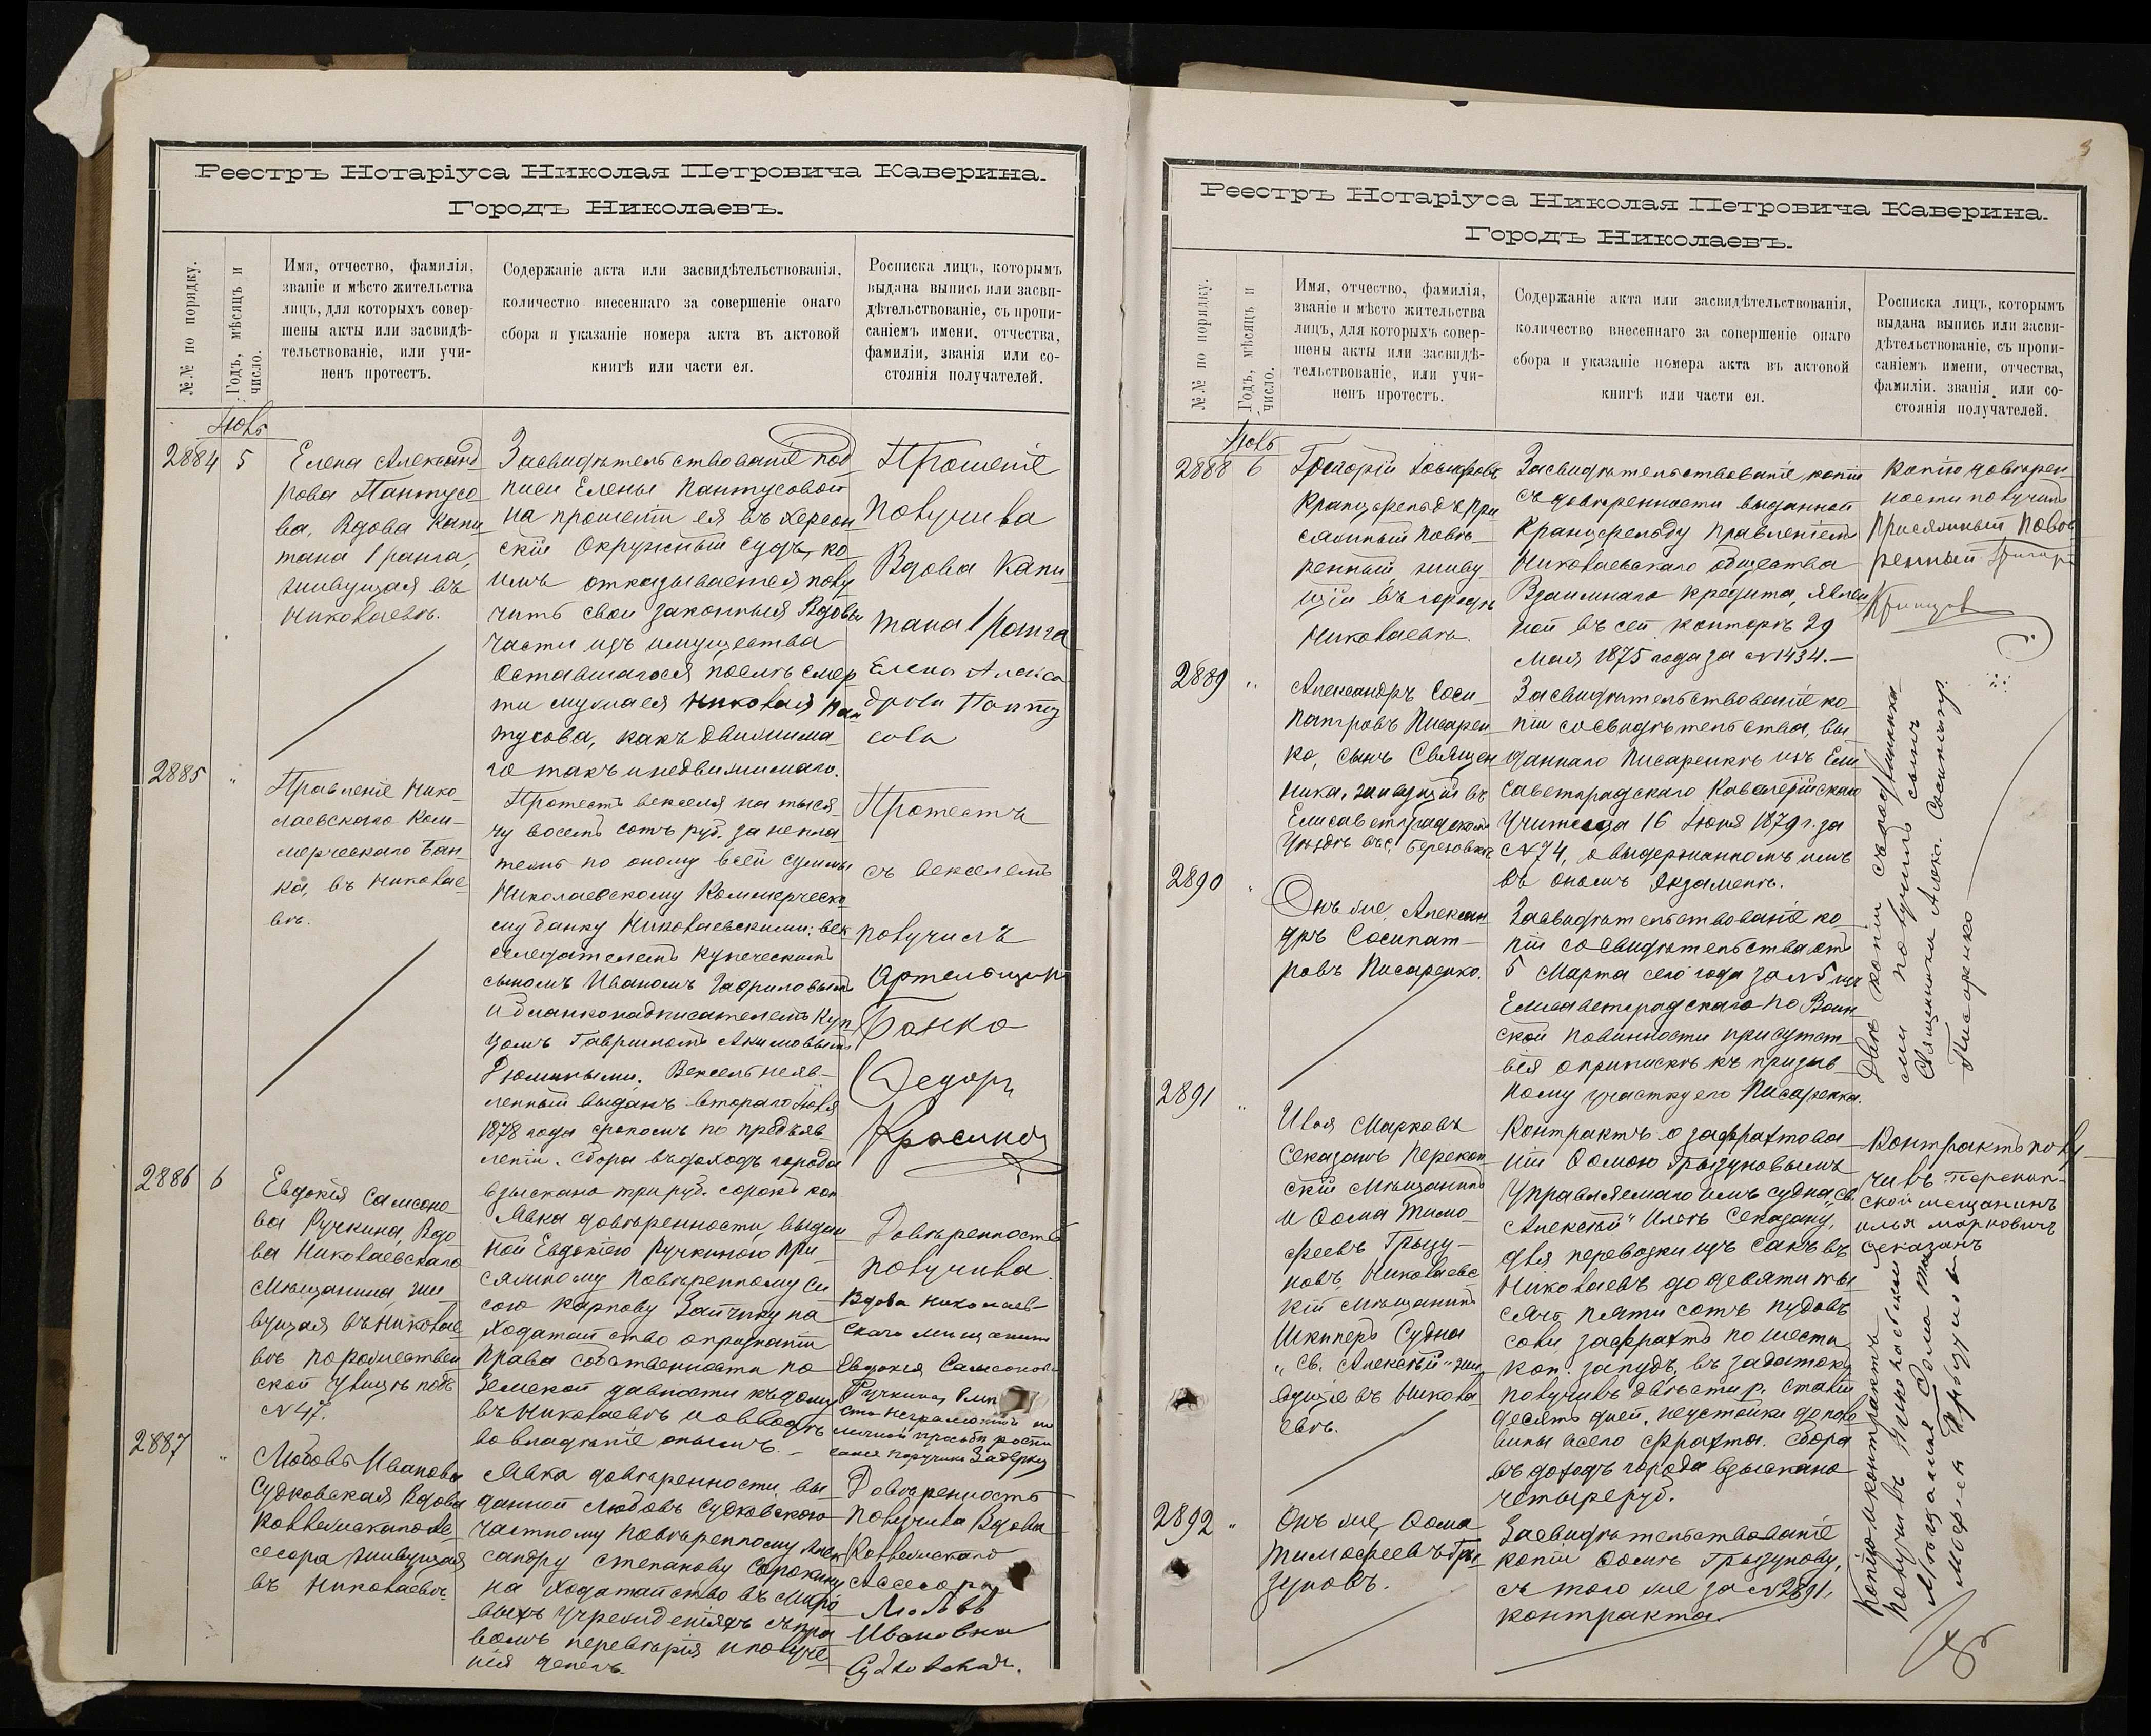 Реестръ Нотаріуса Николая Петровича Каверина.
Городъ Николаевъ.
№№ по порядку.
Годъ, мѣсяцъ и
число.
Имя, отчество, фамилія,
званіе и мѣсто жительства
лицъ, для которыхъ совер-
шены акты или засвидѣ-
тельствованіе, или учи-
ненъ протестъ.
Содержаніе акта или засвидѣтельствованія,
количество внесеннаго за совершеніе онаго
сбора и указаніе номера акта въ актовой
книгѣ или части ея.
Росписка лицъ, которымъ
выдана выпись или засви-
дѣтельствованіе, съ пропи-
саніемъ имени, отчества,
фамиліи, званія или со-
стоянія получателей.
Іюль
2884 5
Елена Александ
рова Пантусо
ва, Вдова Капи
тана 1 ранга,
живущая въ
Николаевѣ.
Засвидѣтельствованіе под
писи Елены Пантусовой
на прошеніи ея въ Херсон
скій Окружный Судъ, ко
имъ отказывается полу
чить свои законныя Вдовьи
части изъ имущества
оставшагося послѣ смер
ти мужа ея Николая Пан
тусова, какъ движима
го такъ и недвижимаго.
Прошеніе
получила
Вдова Капи
тана 1 ранга
Елена Алекса
дрова Панту
сова
2885 "
Правленіе Нико-
лаевскаго Ком-
мерческаго Бан-
ка, въ Николае
вѣ.
Протестъ векселя на тыся
чу восемь сотъ руб. за непла
тежъ по оному всей суммы
Николаевскому Коммерческо
му банку Николаевскими: век
селедателемъ купеческимъ
сыномъ Иваномъ Гавриловымъ
и бланконадписателемъ Куп
цомъ Гавриломъ Акимовымъ
Дюмиными. Вексель неяв-
ленный выданъ втораго Іюля
1878 года срокомъ по предъяв
леніи. Сбора въ доходъ города
взыскано три руб. сорокъ коп
Протестъ
съ векселемъ
получилъ
Артельщикъ
Банка
Федоръ
2886 6
Евдокія Самсоно-
ва Ручкина, Вдо
ва Николаевскаго
Мѣщанина, жи-
вущая въ Николае
вѣ по рождествен
ской улицѣ подъ
№ 47.
Явка довѣренности, выдан
ной Евдокіею Ручкиною при
сяжному повѣренному Си
сою Карпову Зайчику на
ходатайство о признаніи
права собственности по
земской давности къ дому
въ Николаевѣ и о вводѣ
во владѣніе онымъ.-
Довѣренность
получила
Вдова Николаев-
скаго мѣщанина
Евдокія Самсонова
Ручкина,
неграмотной по
личной просьбѣ роспи
сался поручикъ
2887 "
Любовь Иванова
Судковская Вдова
Коллежскаго Ас
сесора живущая
въ Николаевѣ.
Явка довѣренности вы
данной Любовь Судковскою
частному повѣренному Алек
сандру Степанову Сорокину
на ходатайство въ Миро
выхъ учрежденіяхъ съ пра
вомъ передовѣрія и получе
нія денегъ.
Довѣренность
получила Вдова
Коллежскаго
Ассесора
Любовь
Ивановна
Судковская.
3
Реестръ Нотаріуса Николая Петровича Каверина.
Городъ Николаевъ.
№№ по порядку.
Годъ, мѣсяцъ и
число.
Имя, отчество, фамилія,
званіе и мѣсто жительства
лицъ, для которыхъ совер-
шены акты или засвидѣ-
тельствованіе, или учи-
ненъ протестъ.
Содержаніе акта или засвидѣтельствованія,
количество внесеннаго за совершеніе онаго
сбора и указаніе номера акта въ актовой
книгѣ или части ея.
Росписка лицъ, которымъ
выдана выпись или засви-
дѣтельствованіе, съ пропи-
саніемъ имени, отчества,
фамиліи. званія. или со-
стоянія получателей.
Іюль
2888 6
Григорій
Кранцфельдъ При
сяжный повѣ-
ренный живу
щій въ городѣ
Николаевѣ.
Засвидѣтельствованіе копіи
съ довѣренности выданной
Кранцфельду Правленіемъ
Николаевскаго общества
Взаимнаго кредита, явлен
ной въ сей конторѣ 29
Мая 1875 года за №1434.—
Копію довѣрен
ности получилъ
присяжный повѣ
ренный
2889 "
Александръ Соси-
патровъ Писарен
ко, сынъ Священ
ника, живущій въ
Елисаветградскомъ
Уѣздѣ въ с. Березовкѣ
Засвидѣтельствованіе ко-
піи со свидѣтельства, вы
даннаго Писаренкѣ изъ Ели
саветградскаго Кавалерійскаго
Училища 16 Іюня 1879 г. за
№74, о выдержанномъ имъ
въ ономъ экзаменѣ.
2890 "
Онъ же, Алексан
дръ Сосипат-
ровъ Писаренко.
Засвидѣтельствованіе ко-
піи со свидѣтельства отъ
5 Марта сего года за №5 изъ
Елисаветградскаго по Воин
ской повинности присутст-
вія о припискѣ къ призыв-
ному участку его Писаренка.
Двѣ копіи съ подлинника
ми получилъ сынъ
Священника Алекс. Сосипатр.
Писаренко
2891 "
Илья Марковъ
Секазанъ Перекоп
скій Мѣщанинъ
и Ѳома Тимо-
феевъ Грызу-
новъ, Николаевс
кій мѣщанинъ
Шкиперъ Судна
"Св. Алексѣй" жи
вущіе въ Никола
евѣ.
Контрактъ о зафрахтова
ніи Ѳомою Грызуновымъ
управляемаго имъ судна "Св.
Алексѣй" Ильѣ Секазану,
для перевозки изъ Сакъ въ
Николаевъ до девяти ты
сячъ пяти сотъ пудовъ
соли, зафрахтъ по шести
коп. за пудъ, въ задатокъ
получилъ двѣсти р. стали
десять дней, неустойки до поло
вины всего фрахта. Сбора
въ доходъ города взыскано
четыре руб.
Контрактъ полу-
чилъ Перекоп-
ской мещанинъ
илья марковичъ
Секазанъ
2892 "
Онъ же, Ѳома
Тимофеевъ Гры
зуновъ.
Засвидѣтельствованіе
копіи Ѳомѣ Грызунову,
съ того же за №2891,
контракта.
Копію и контрактъ
получилъ Николаевской
Мѣщанинъ Фома Ти
мофеевъ Грызуновъ